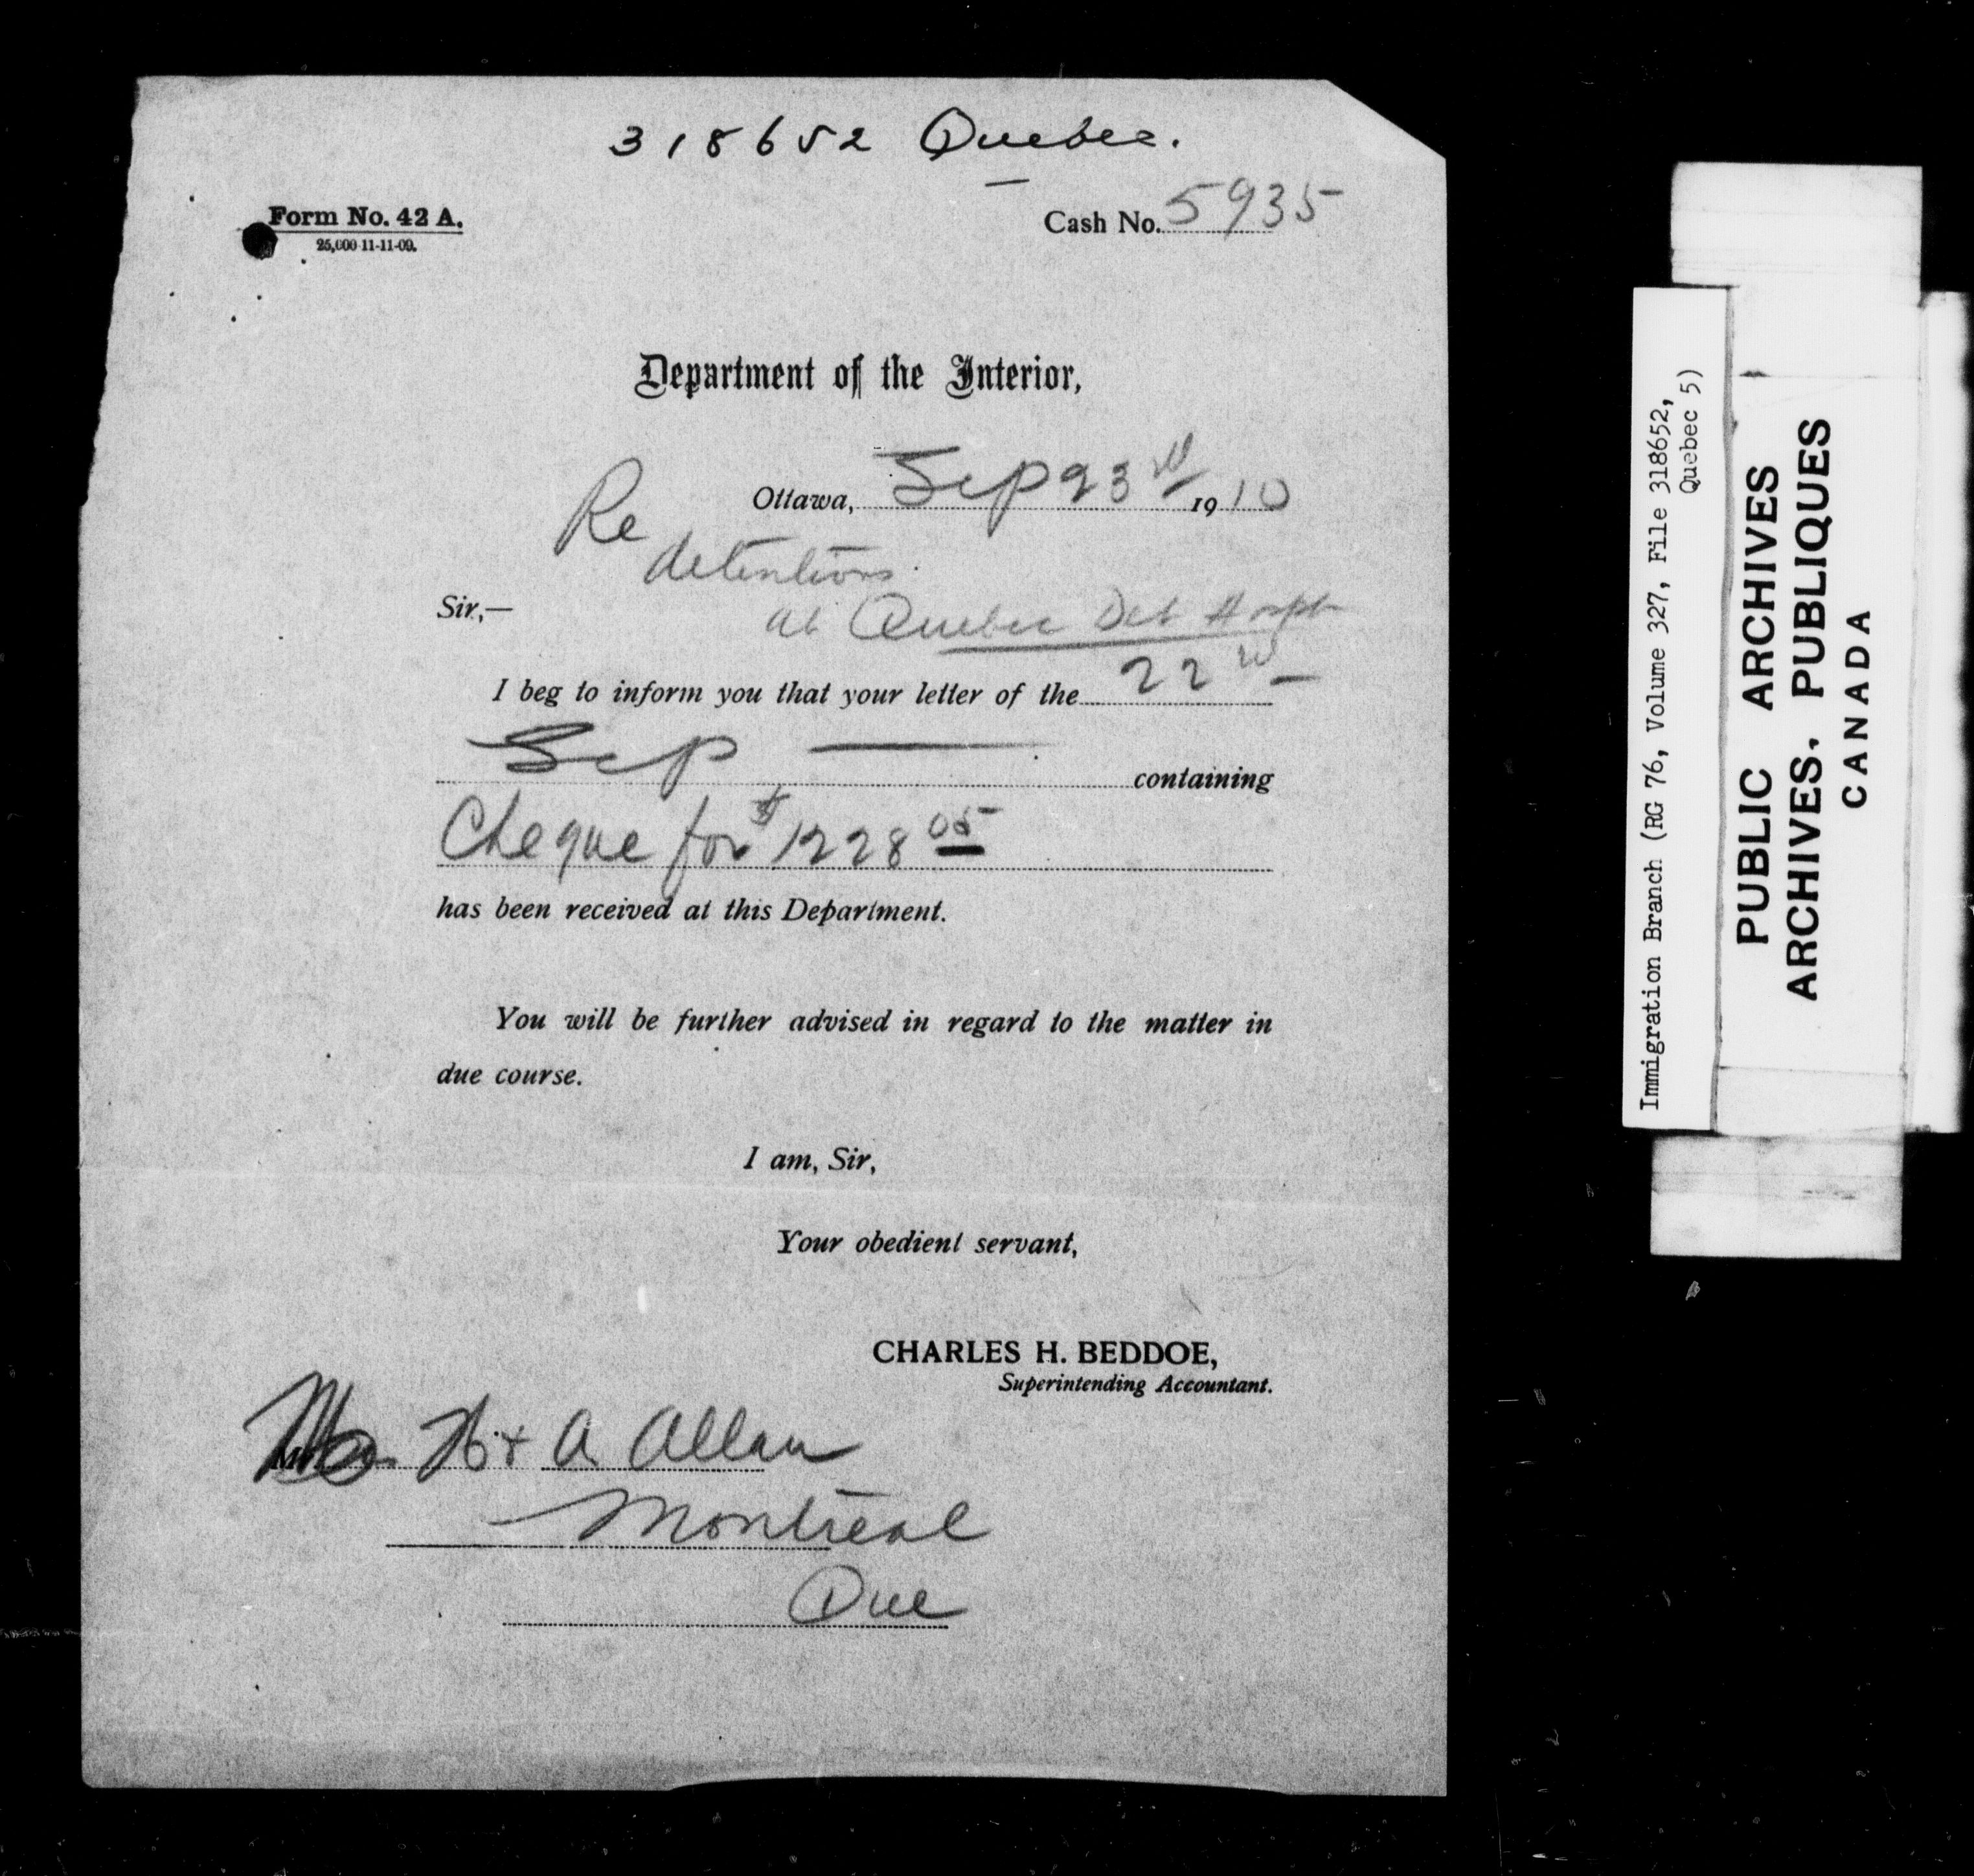 318652 Quebec.
Form No. 42 A.
25,000-11-11-09.
Cash No. 5935
Department of the Interior,
Ottawa, Sep 23rd 1910
Re
detentions
at Quebec Det Hospt
Sir,—
I beg to inform you that your letter of the 22nd
Sep containing
Cheque for $1228 05
has been received at this Department.
You will be further advised in regard to the matter in
due course.
I am, Sir,
Your obedient servant,
CHARLES H. BEDDOE,
Superintending Accountant.
H + A Allan
Montreal
Que
Immigration Branch (RG 76, Volume 327, File 318652,
Quebec 5)
PUBLIC ARCHIVES
ARCHIVES. PUBLIQUES
CANADA